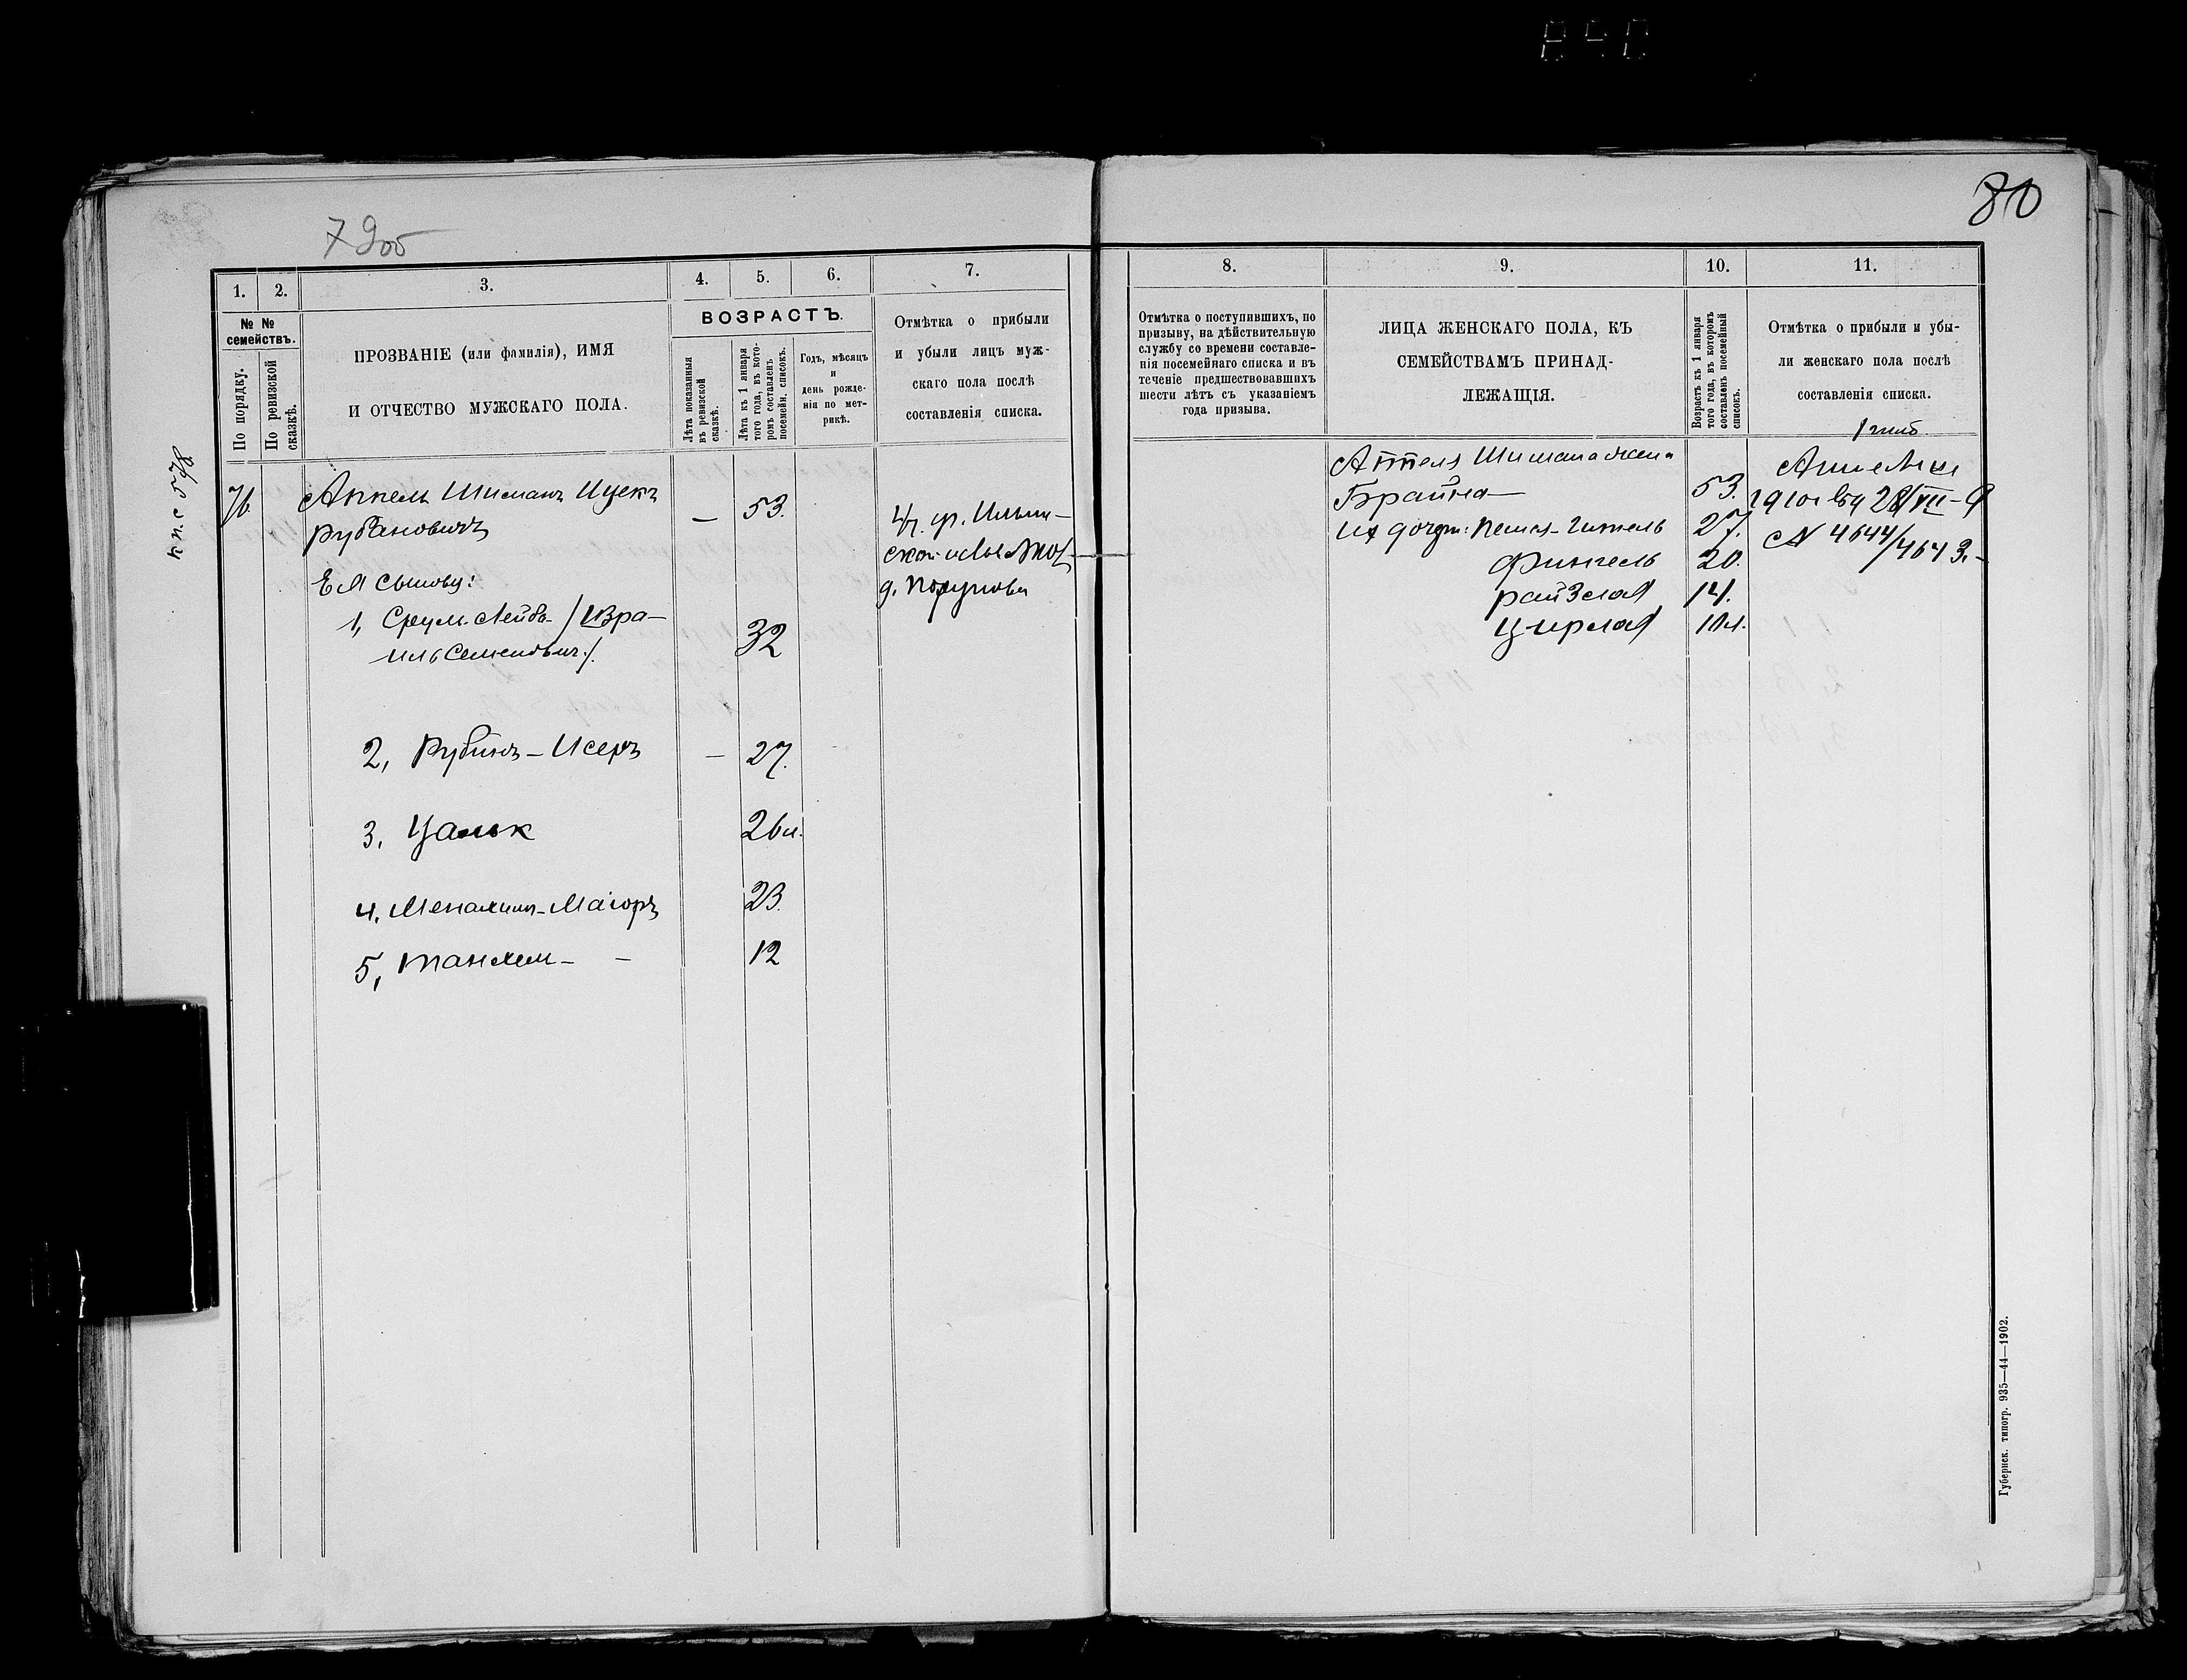 80
7
1.
2.
3.
4.
5.
6.
7.
№ №
семействъ.
По порядку.
По ревизской
сказкѣ.
ПРОЗВАНІЕ (или фамилія), ИМЯ
И ОТЧЕСТВО МУЖСКАГО ПОЛА.
ВОЗРАСТЪ.
Лѣта показанныя
въ ревизской
сказкѣ.
Лѣта къ 1 января
того года, въ кото-
ромъ составленъ
посемейн. списокъ.
Годъ, мѣсяцъ
и
день рожде-
нія по мет-
рикѣ.
Отмѣтка о прибыли
и убыли лицъ муж-
скаго пола послѣ
составленія списка.
кп.с 578
76
Аппель Шиманъ Ицекъ
— 53.
Рубановичъ
Ея сыновья:
1, Сруль-Лейба /Изра-
иль Семеновичъ/.
32
2, Рубинъ-Исеръ — 27.
3, Цалык 26 л.
4, Менахимъ-Маіоръ 23.
5, Танхем - - 12
д.
8.
9.
10.
11.
Отмѣтка о поступившихъ, по
призыву, на дѣйствительную
службу со времени составле-
нія посемейнаго списка и въ
теченіе предшествовавшихъ
шести лѣтъ съ указаніемъ
года призыва.
ЛИЦА ЖЕНСКАГО ПОЛА, КЪ
СЕМЕЙСТВАМЪ ПРИНАД-
ЛЕЖАЩІЯ.
Возрастъ къ 1 января
того года, въ которомъ
составленъ посемейный
списокъ.
Отмѣтка о прибыли и убы-
ли женскаго пола послѣ
составленія списка.
Аппеля Шимана жена
Брайна — 53.
Их дочери: Песая-Гитель 27.
Финкель 20.
Райзла 14.
Цирла 10 л.
1910
№ 4644/4643.-
Губернск. типогр. 935—44—1902.